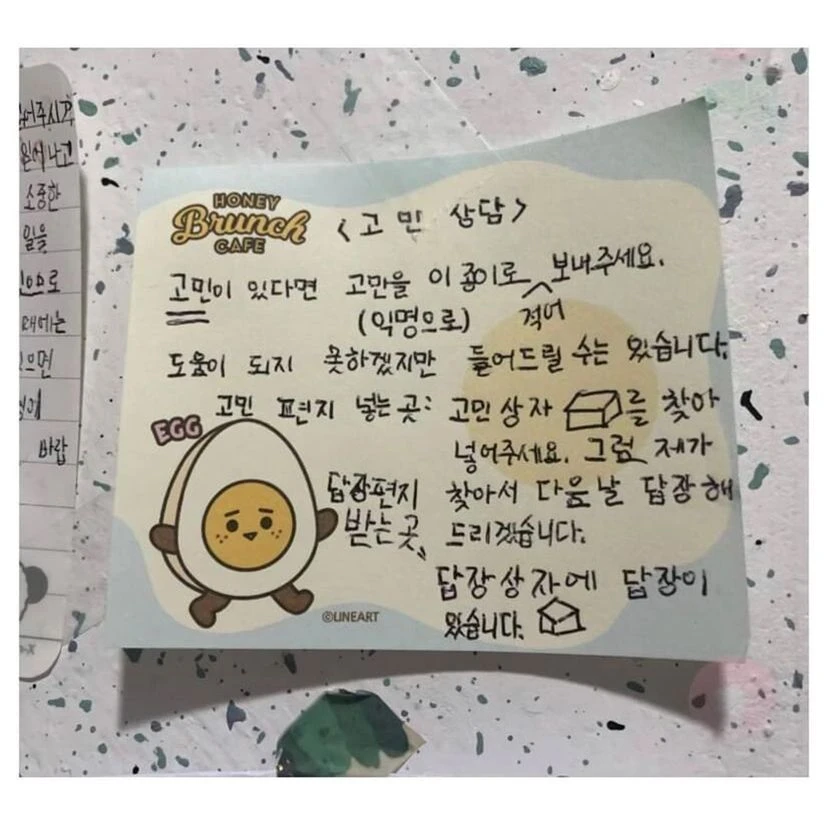 어주시기
소중한
일을
으로
때에는
으면
바랍
HONEY
Brunch
CAFE
<고민 상담>
고민이 있다면 고민을 이 종이로 적어 보내주세요.
(익명으로)
도움이 되지 못하겠지만 들어드릴 수는 있습니다.
고민 편지 넣는 곳: 고민상자 를 찾아
넣어주세요. 그럼 제가
찾아서 다음날 답장해
드리겠습니다.
EGG
답장편지
받는 곳:
답장상자에 답장이
있습니다.
©LINEART